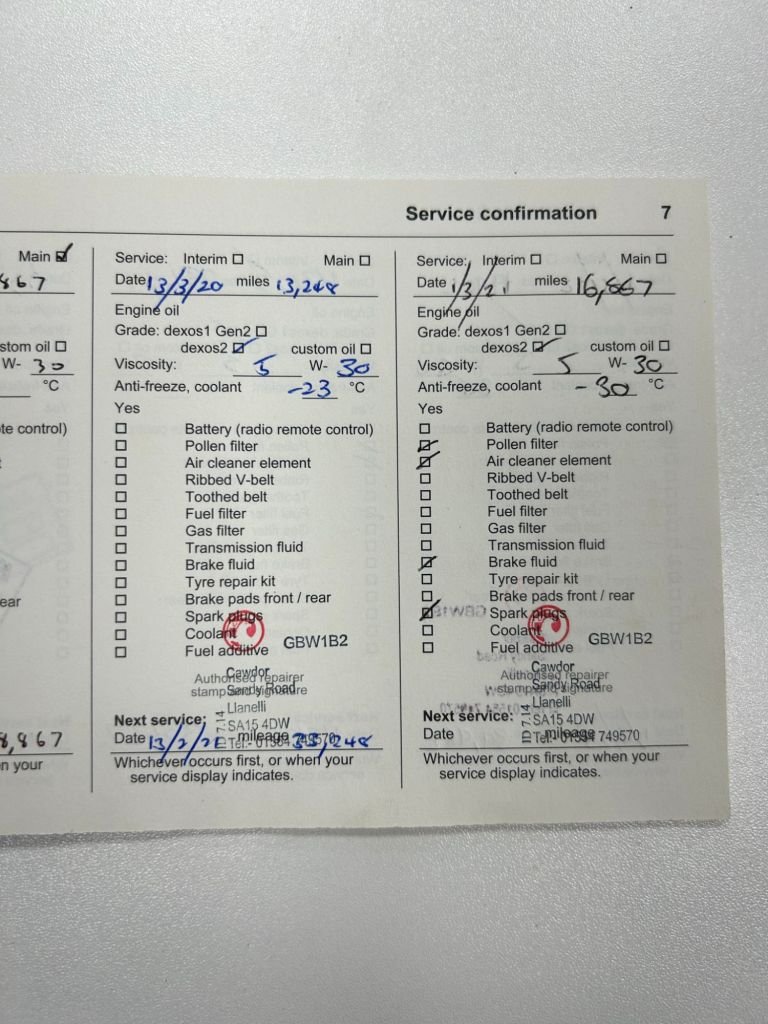 Service confirmation 7
Main ☑
867
stom oil ☐
W- 30
°C
te control)
ear
8,867
n your
Service: Interim ☐ Main ☐
Date 13/3/20 miles 13,248
Engine oil
Grade: dexos1 Gen2 ☐
dexos2 ☑ custom oil ☐
Viscosity: 5 W- 30
Anti-freeze, coolant -23 °C
Yes
☐ Battery (radio remote control)
☐ Pollen filter
☐ Air cleaner element
☐ Ribbed V-belt
☐ Toothed belt
☐ Fuel filter
☐ Gas filter
☐ Transmission fluid
☐ Brake fluid
☐ Tyre repair kit
☐ Brake pads front / rear
☐ Spark plugs
☐ Coolant GBW1B2
☐ Fuel additive
Cawdor
Authorised repairer
stamp and signature
Sandy Road
Llanelli
Next service: SA15 4DW
ID 7.14
Tel:- 01554 749570
Date 13/2/21 mileage 33,248
Whichever occurs first, or when your
service display indicates.
Service: Interim ☐ Main ☐
Date 1/3/21 miles 16,867
Engine oil
Grade: dexos1 Gen2 ☐
dexos2 ☑ custom oil ☐
Viscosity: 5 W- 30
Anti-freeze, coolant -30 °C
Yes
☐ Battery (radio remote control)
☑ Pollen filter
☑ Air cleaner element
☐ Ribbed V-belt
☐ Toothed belt
☐ Fuel filter
☐ Gas filter
☐ Transmission fluid
☑ Brake fluid
☐ Tyre repair kit
☐ Brake pads front / rear
☑ Spark plugs
☐ Coolant GBW1B2
☐ Fuel additive
Cawdor
Authorised repairer
stamp and signature
Sandy Road
Llanelli
Next service: SA15 4DW
ID 7.14
Tel:- 01554 749570
Date mileage
Whichever occurs first, or when your
service display indicates.